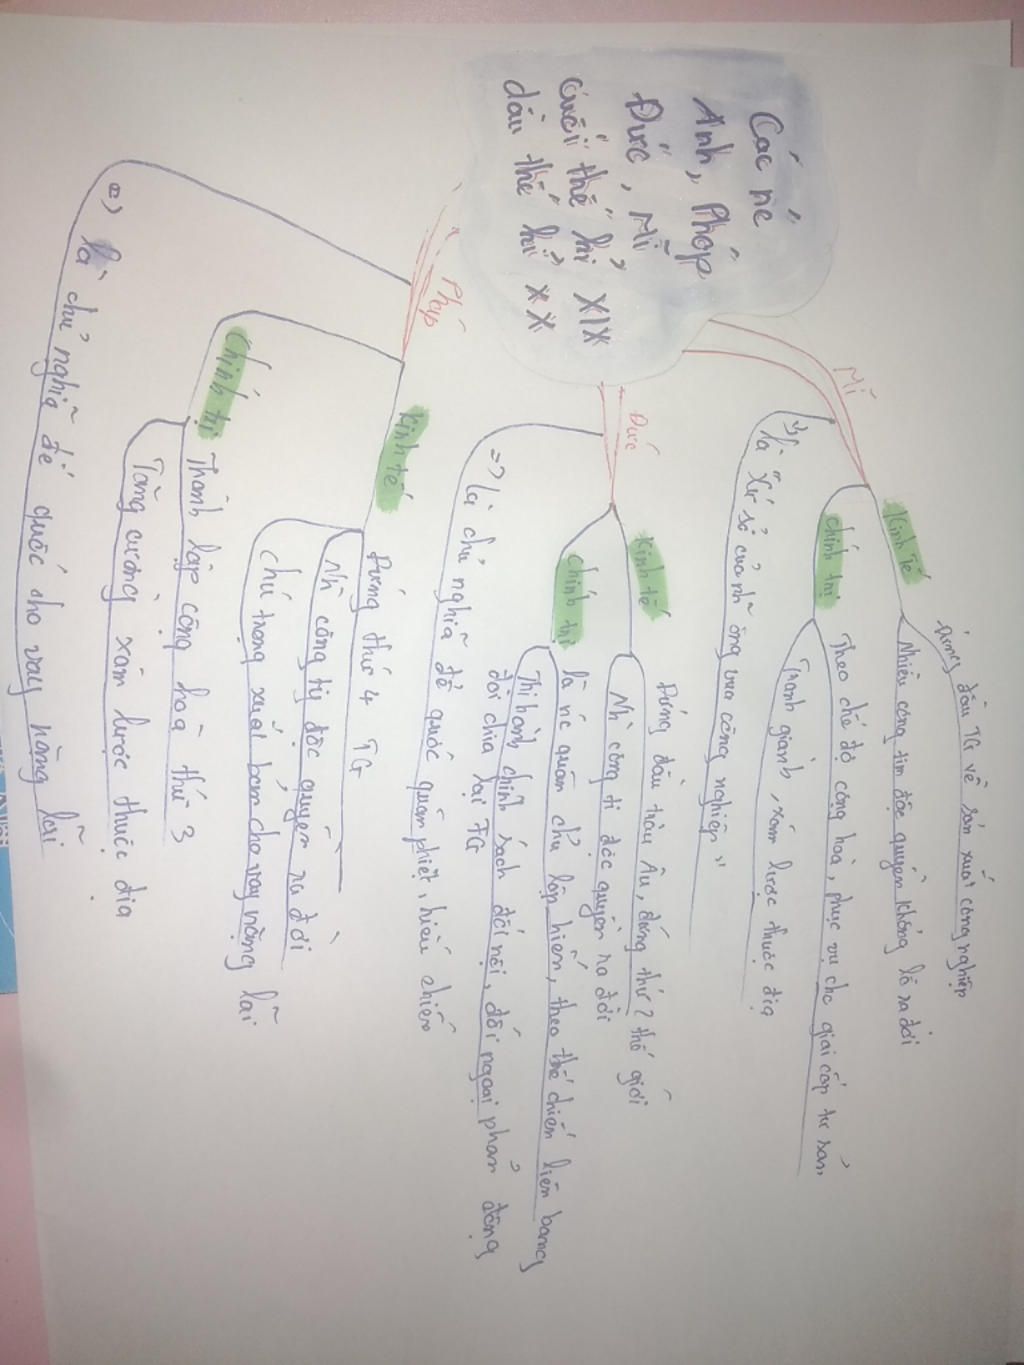 Các nc
Anh, Pháp
Đức, Mĩ
Cuối thế kỉ XIX
đầu thế kỉ XX
Mĩ
Kinh tế
Đứng đầu TG về sản xuất công nghiệp
Nhiều công tin độc quyền khổng lồ ra đời
chính trị
Theo chế độ cộng hoà, phục vụ cho giai cấp tư sản,
Tranh giành, xâm lược thuộc địa
=> là "xứ sở của nh~ ông vua công nghiệp"
Đức
Kinh tế
Đứng đầu châu Âu, đứng thứ 2 thế giới
Nh~ công ti độc quyền ra đời
chính trị
là nc quân chủ lập hiến, theo thể chiến liên bang
Thi hành chính sách đối nội, đối ngoại phản động
đòi chia lại TG
=> là chủ nghĩa đế quốc quân phiệt, hiếu chiến
Pháp
Kinh tế
Đứng thứ 4 TG
Nh~ công ty độc quyền ra đời
chú trọng xuất bản cho vay nặng lãi
Chính trị
Thành lập cộng hoà thứ 3
Tăng cường xâm lược thuộc địa
=> là chủ nghĩa đế quốc cho vay nặng lãi